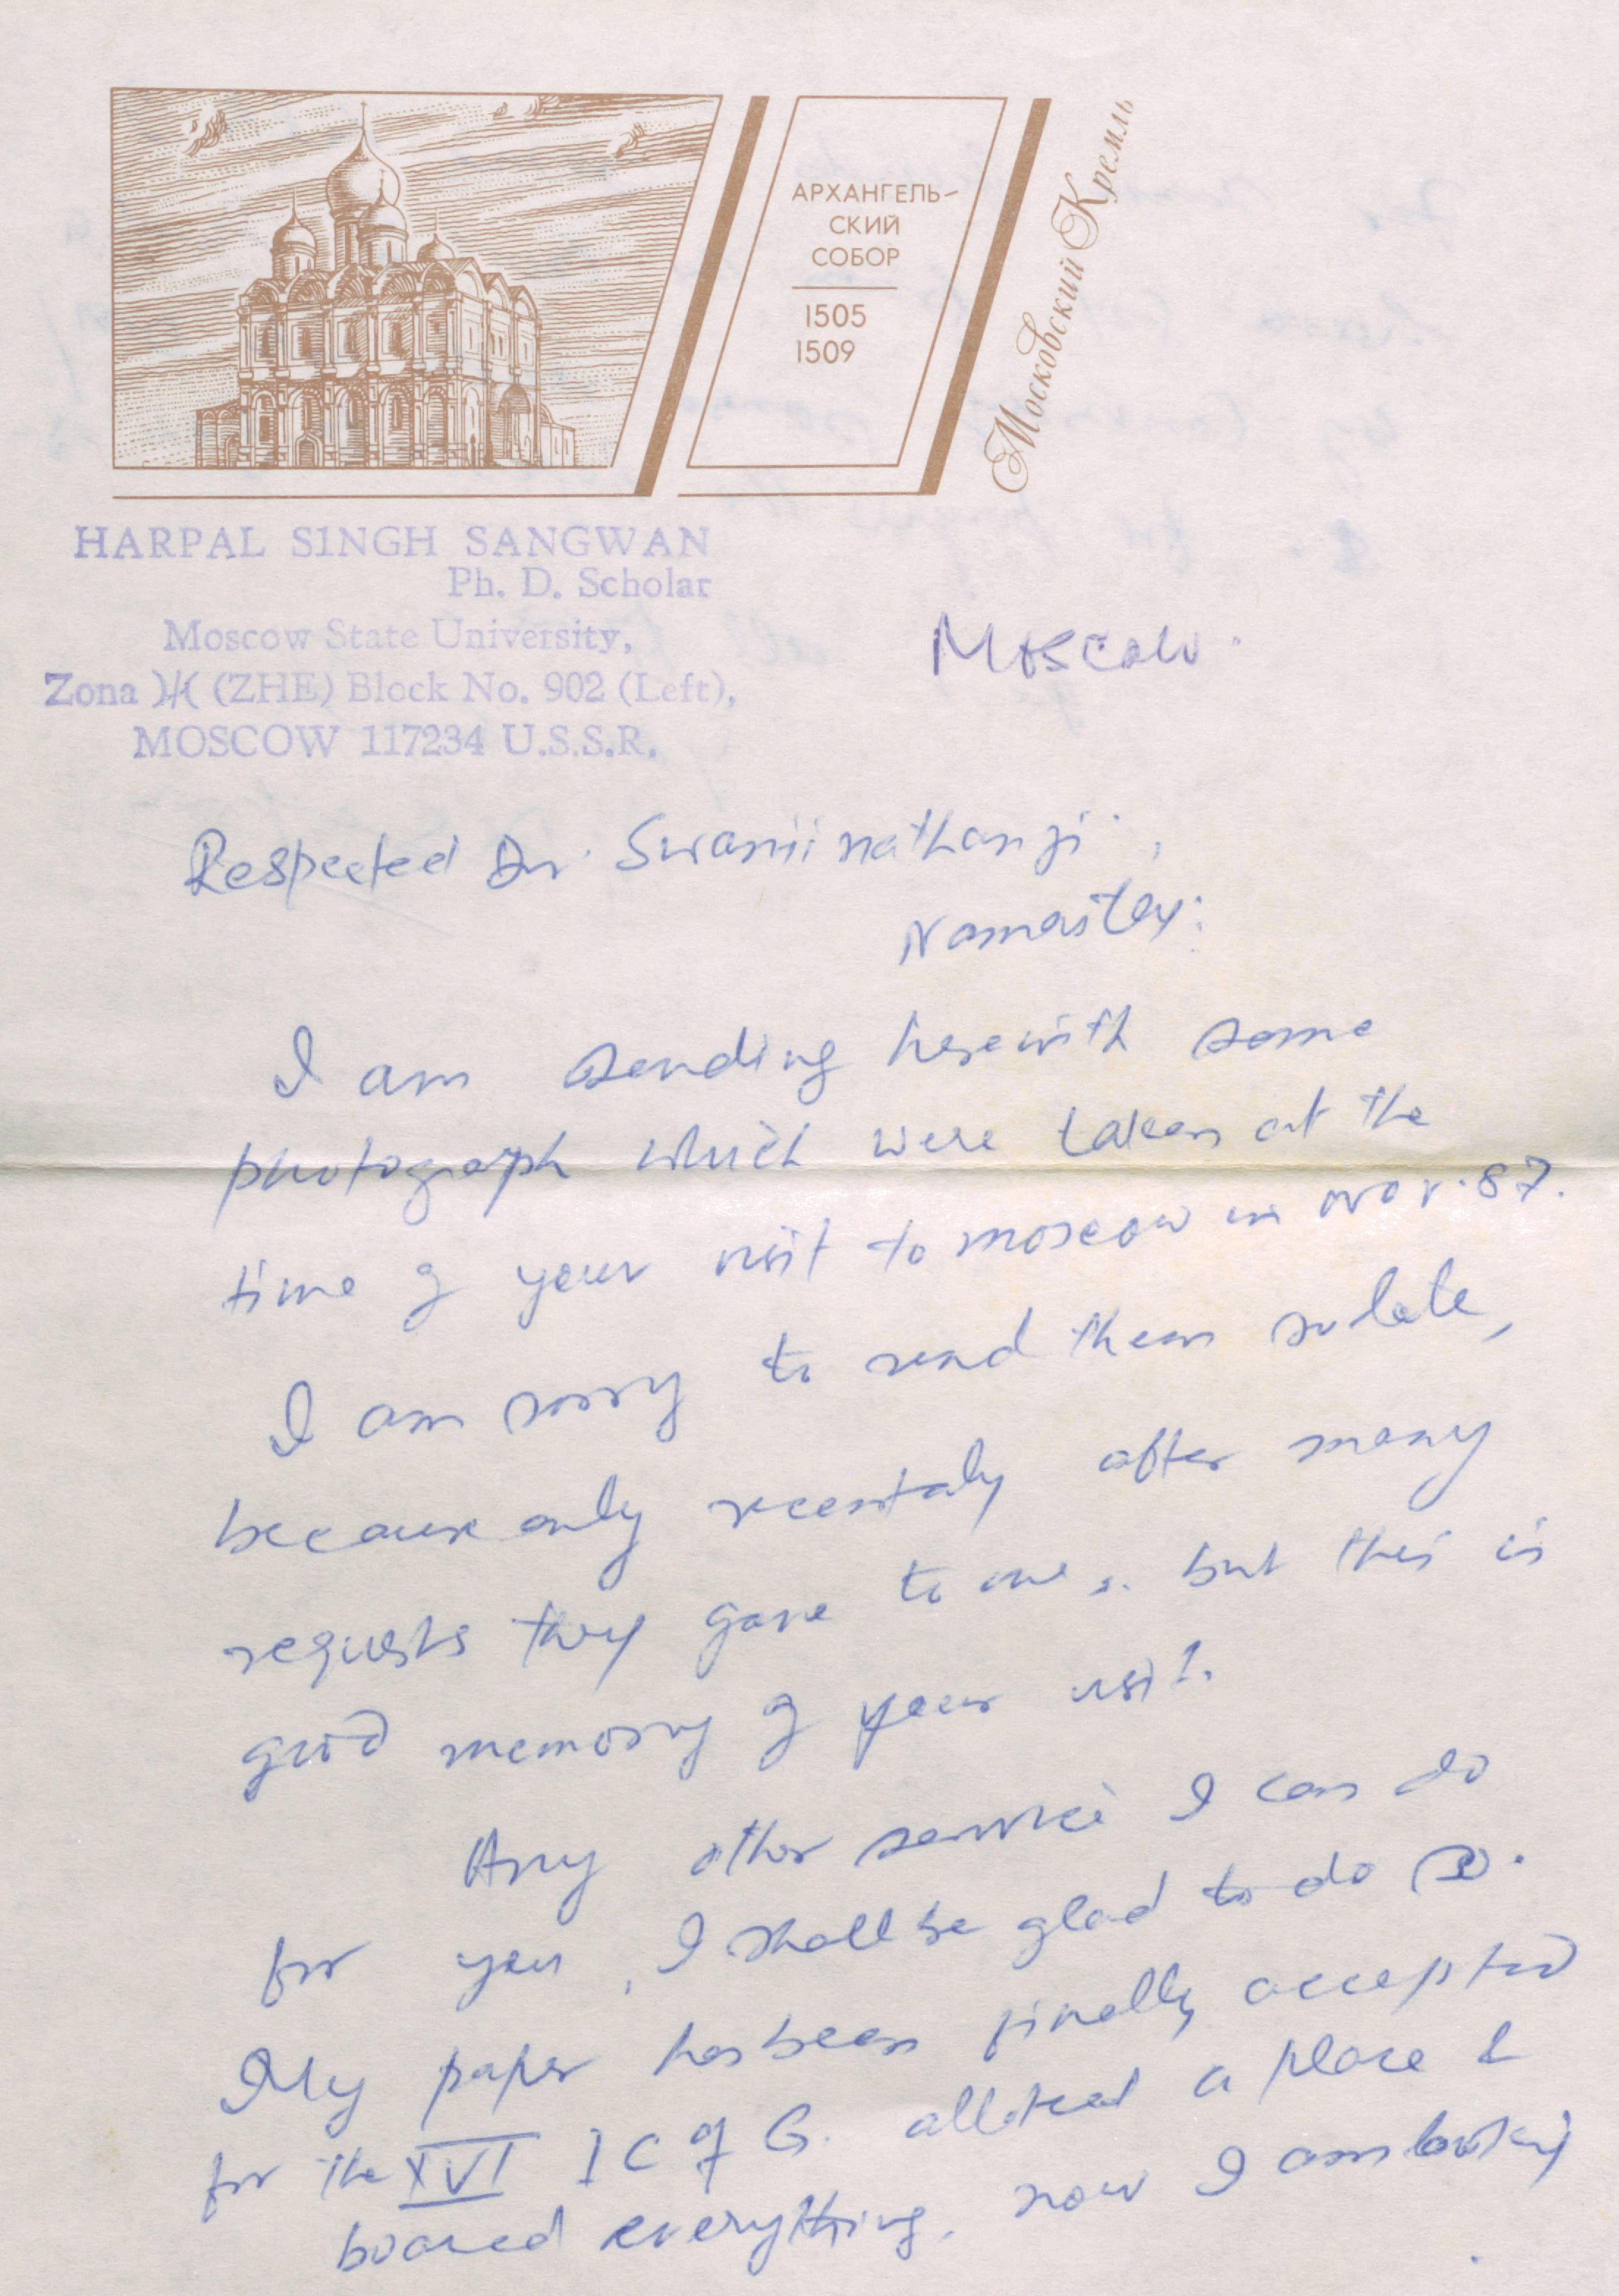 АРХАНГЕЛЬ-
СКИЙ
СОБОР
1505
1509
Московский Кремль
HARPAL SINGH SANGWAN
Ph. D. Scholar
Moscow State University,
Zona Ж (ZHE) Block No. 902 (Left),
MOSCOW 117234 U.S.S.R.
Moscow.
Respected Dr. Swaminathanji,
Namastey:
I am sending herewith some
photograph which were taken at the
time of your visit to moscow in nov. 87.
I am sorry to send them so late,
because only recentaly after many
requests they gave to me, but this is
good memory of your visit.
Any other service I can do
for you, I shall be glad to do so.
My paper has been finally accepted
for the XVI I C of G. alloted a place &
board everything. now I am looking